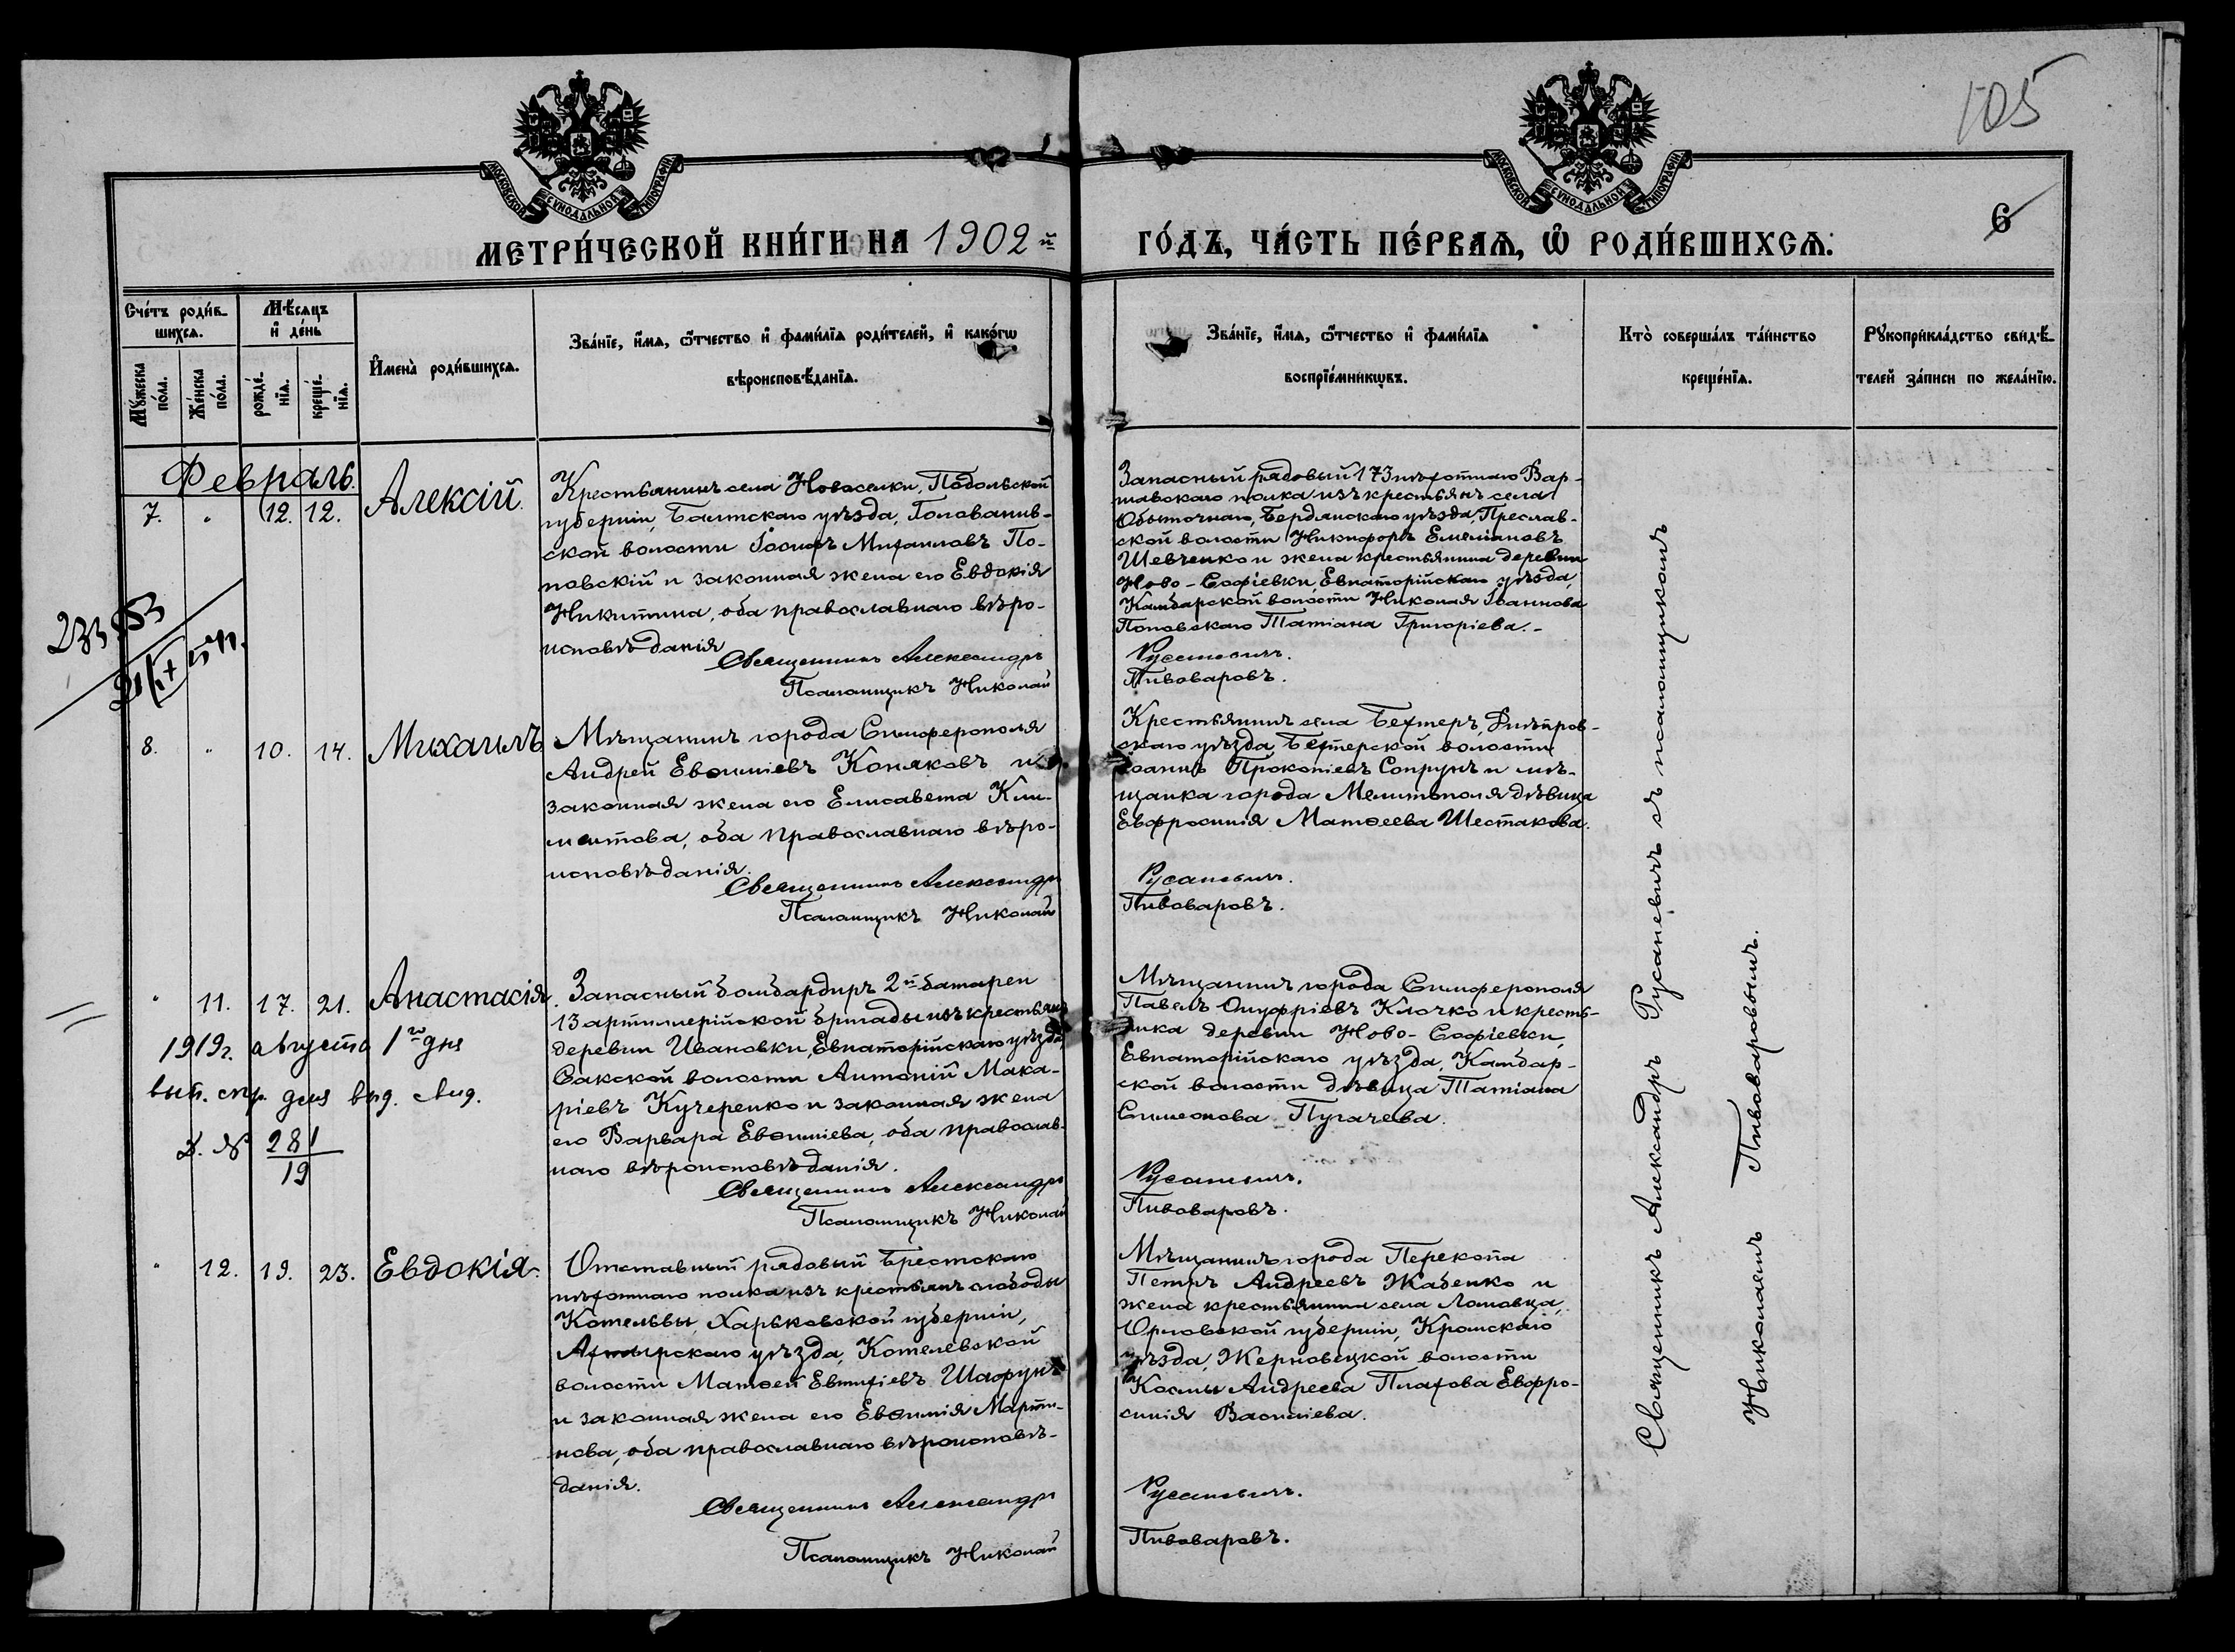 105
МОСКОВСКОЙ СѴНОДАЛЬНОЙ ТИПОГРАФІИ
МОСКОВСКОЙ СѴНОДАЛЬНОЙ ТИПОГРАФІИ
6
МЕТРИ́ЧЕСКОЙ КНИ́ГИ НА 1902 й
ГО́ДЪ, ЧА́СТЬ ПЕ́РВАѦ, Ѡ РОДИ́ВШИХСѦ.
Сче́тъ роди́в-
шихсѧ.
Мꙋ́жеска по́ла.
Же́нска по́ла.
Мѣ́сѧцъ
и де́нь
рожде́-
нїѧ.
креще́-
нїѧ.
И́мена̀ роди́вшихсѧ.
Зва́нїе, и́мѧ, ѻ҆́тчество и҆ фами́лїѧ роди́телей, и҆ како́гѡ
вѣроисповѣ́данїѧ.
Зва́нїе, и́мѧ, ѻ҆́тчество и҆ фами́лїѧ
воспрїе́мникѡвъ.
Кто̀ соверша́лъ та́инство
креще́нїѧ.
Рꙋкоприкла́дство свидѣ́-
телей за́писи по жела́нїю.
Февраль.
7. " 12. 12. Алексій.
Крестьянинъ села Новоселки, Подольской
губерніи, Балтскаго уѣзда, Голованив-
ской волости Іосифъ Михаиловъ По-
повскій и законная жена его Евдокія
Никитина, оба православнаго вѣро-
исповѣданія
Священникъ Александръ
Псаломщикъ Николай
Запасный рядовый 173 пѣхотнаго Вар-
шавскаго полка изъ крестьянъ села
Обыточнаго, Бердянскаго уѣзда, Преслав-
ской волости Никифоръ Емеліановъ
Шевченко и жена крестьянина деревни
Ново-Софіевки Евпаторійскаго уѣзда,
Камбарской волости Николая Іоаннова
Поповскаго Татіана Григоріева.-
Русаневичъ.
Пивоваровъ.
8. " 10. 14. Михаилъ
Мѣщанинъ города Симферополя
Андрей Евѳиміевъ Коняковъ и
законная жена его Елисавета Кли-
ментова, оба православнаго вѣро-
исповѣданія.
Священникъ Александръ
Псаломщикъ Николай
Крестьянинъ села Бехтеръ, Днѣпров-
скаго уѣзда, Бехтерской волости
Іоаннъ Прокопіевъ Сопрунъ и мѣ-
щанка города Мелитополя дѣвица
Евфросинія Матѳеева Шестакова.
Русаневичъ.
Пивоваровъ.
" 11. 17. 21. Анастасія.
1919г. августа 1го дня
вып. спр. для выд.
д. № 281
19
Запасный бомбардиръ 2й батареи
13 артиллерійской бригады изъ крестьянъ
деревни Ивановки, Евпаторійскаго уѣзда,
Сакской волости Антоній Мака-
ріевъ Кучеренко и законная жена
его Варвара Евѳиміева, оба православ-
наго вѣроисповѣданія.
Священникъ Александръ
Псаломщикъ Николай
Мѣщанинъ города Симферополя
Павелъ Онуфріевъ Клочко и кресть-
янка деревни Ново-Софіевки,
Евпаторійскаго уѣзда, Камбар-
ской волости дѣвица Татіана
Симеонова Пугачева.
Русаневичъ.
Пивоваровъ.
" 12. 19. 23. Евдокія.
Отставный рядовый Брестскаго
пѣхотнаго полка изъ крестьянъ слободы
Котельвы, Харьковской губерніи,
Ахтырскаго уѣзда, Котелевской
волости Матѳей Евтихіевъ Шафунъ
и законная жена его Евѳимія Марти-
нова, оба православнаго вѣроисповѣ-
данія.
Священникъ Александръ
Псаломщикъ Николай
Мѣщанинъ города Перекопа
Петръ Андреевъ Жабенко и
жена крестьянина села Ломовца,
Орловской губерніи, Кромскаго
уѣзда, Жерновецкой волости
Космы Андреева Плахова Евфро-
синія Василіева.
Русаневичъ.
Пивоваровъ.
Священникъ Александръ Русаневичъ съ псаломщикомъ
Николаемъ Пивоваровымъ.